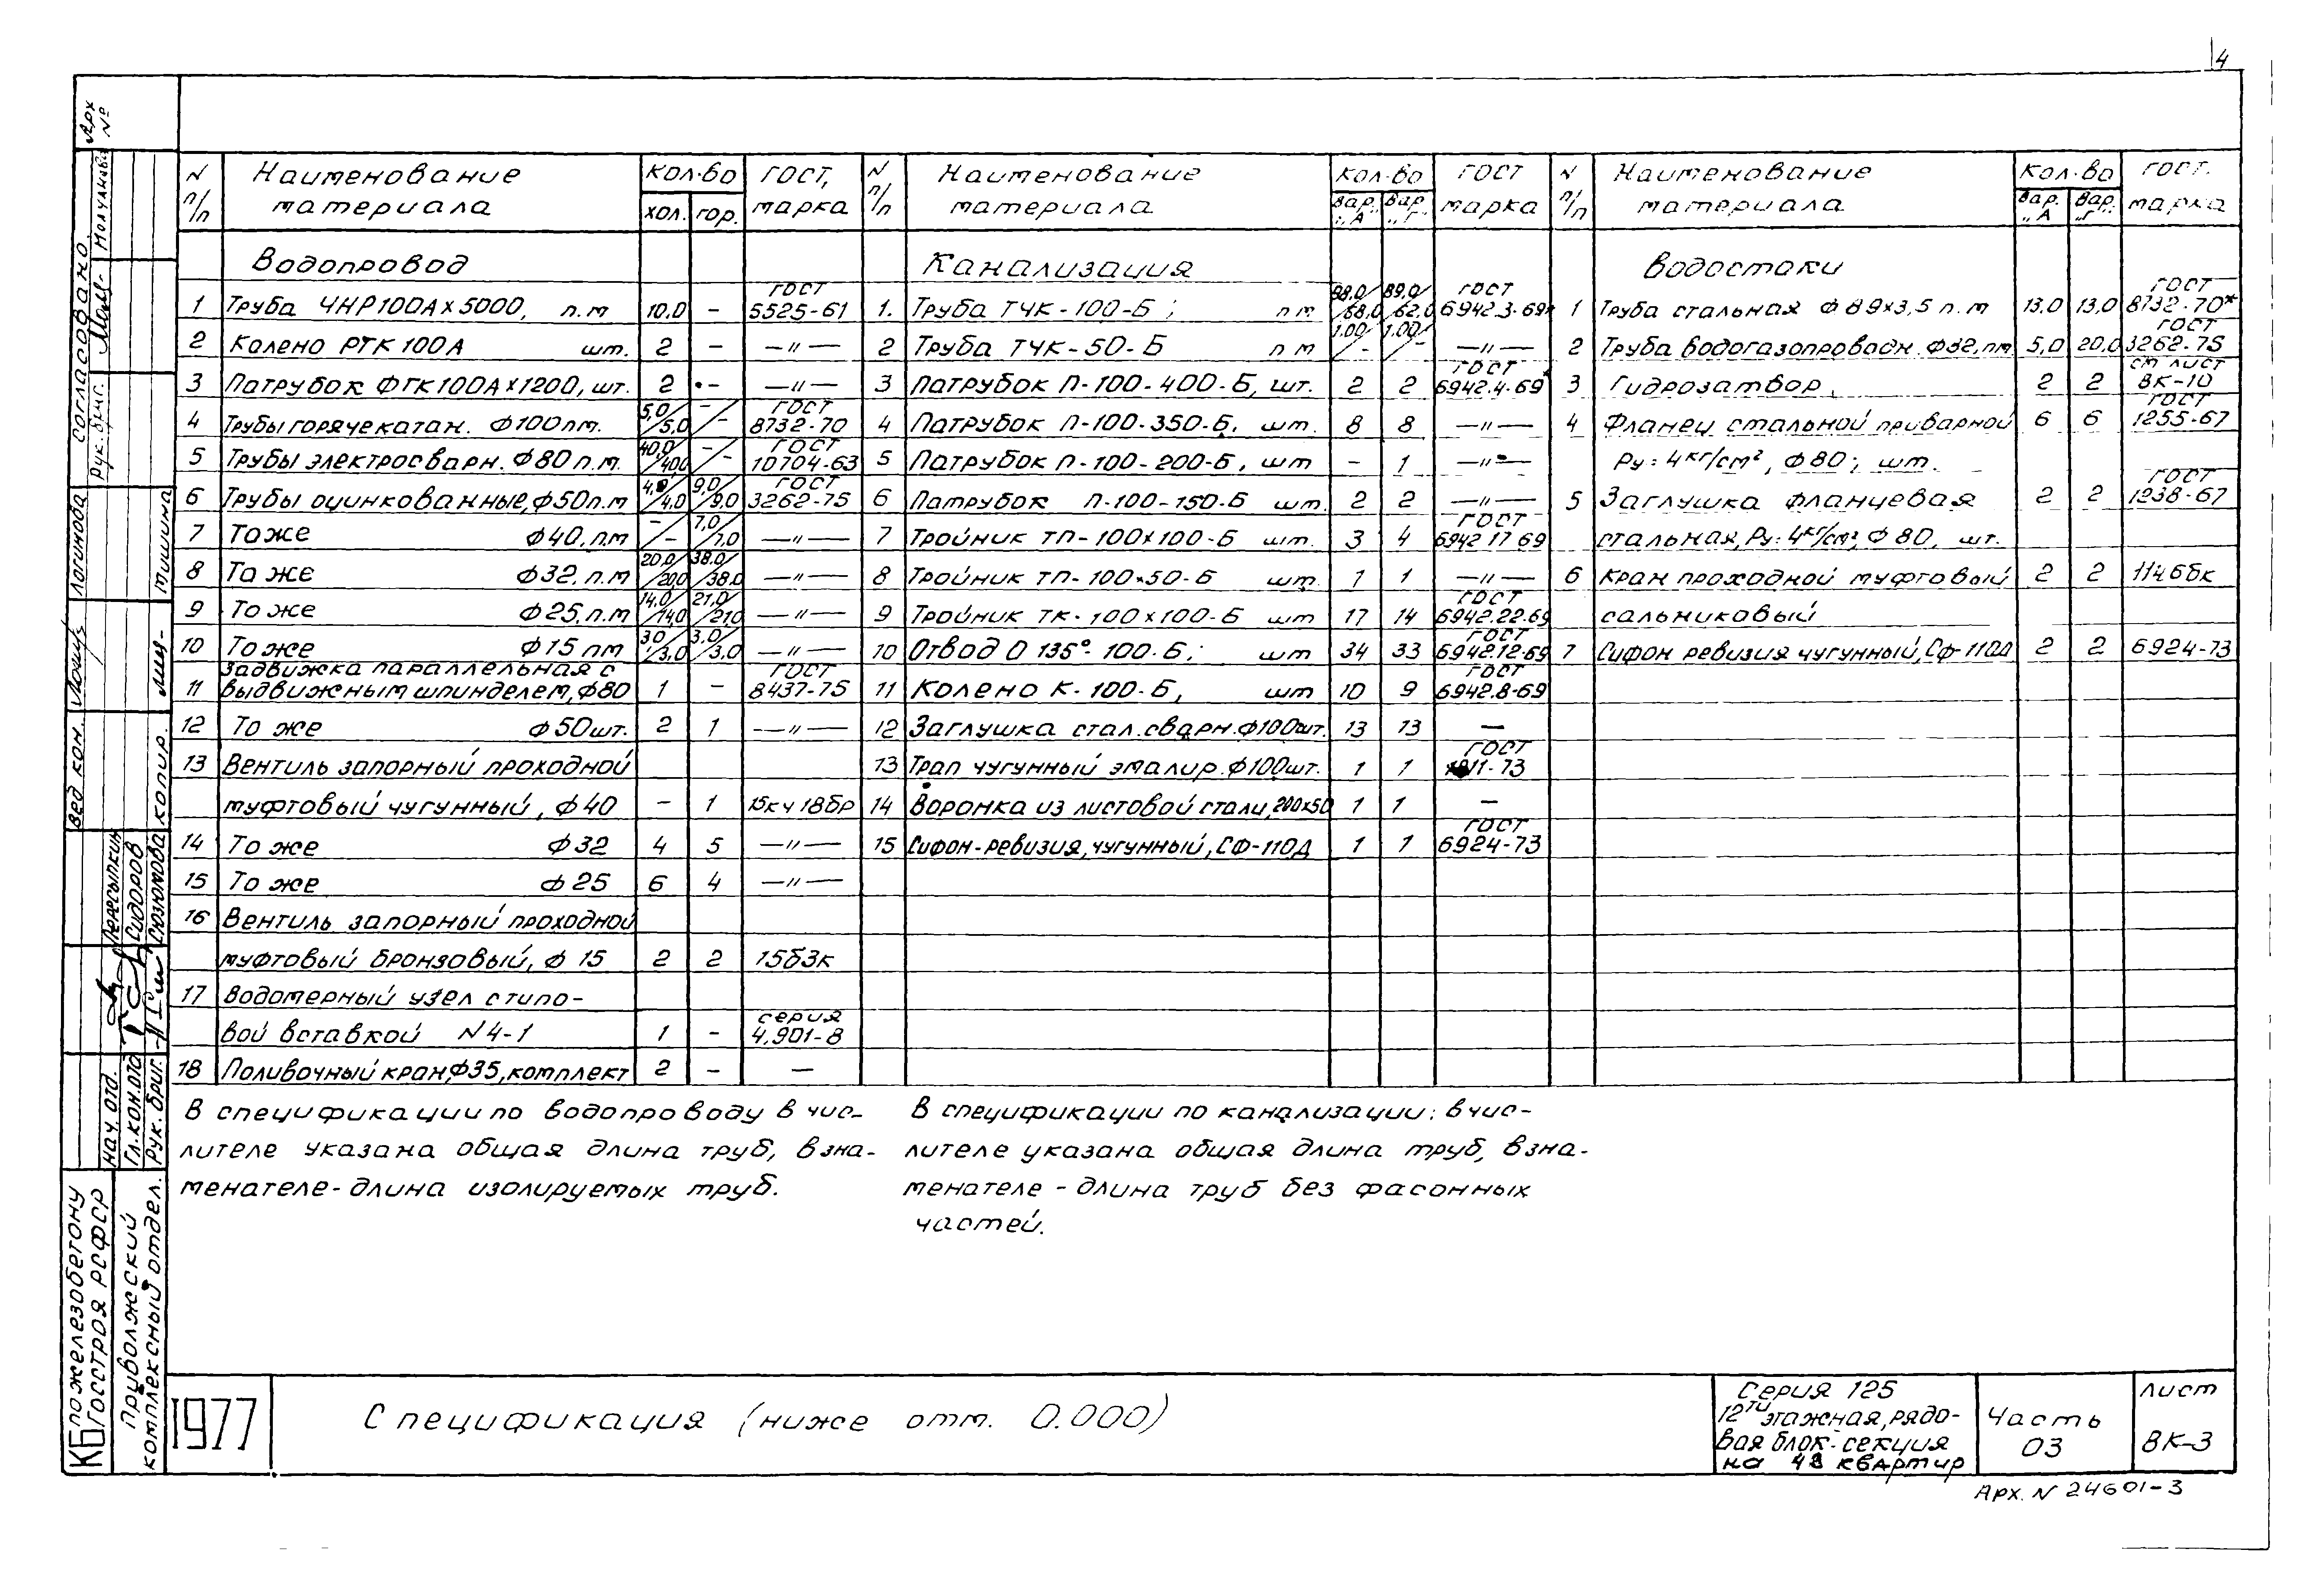 4
N п/п Наименование материала кол-во хол. гор. ГОСТ, марка
Водопровод
1 Труба ЧНР100А×5000, п.м 10,0 – ГОСТ 5525-61
2 Колено РТК 100А шт. 2 – —"—
3 Патрубок ФГК100А×1200, шт. 2 – —"—
4 Трубы горячекатан. ф100пм. 5,0/5,0 –/– ГОСТ 8732-70
5 Трубы электросварн. ф80 п.м. 40,0/40,0 –/– ГОСТ 10704-63
6 Трубы оцинкованные, ф50п.м 4,0/4,0 9,0/9,0 ГОСТ 3262-75
7 То же ф40, п.м –/– 7,0/7,0 —"—
8 То же ф32, п.м 20,0/20,0 38,0/38,0 —"—
9 То же ф25, п.м 14,0/14,0 21,0/21,0 —"—
10 То же ф15 пм 3,0/3,0 3,0/3,0 —"—
11 Задвижка параллельная с
выдвижным шпинделем, ф80 1 – ГОСТ 8437-75
12 То же ф50шт. 2 1 —"—
13 Вентиль запорный проходной
муфтовый чугунный, ф40 – 1 15кч18бр
14 То же ф32 4 5 —"—
15 То же ф25 6 4 —"—
16 Вентиль запорный проходной
муфтовый бронзовый, ф 15 2 2 15б3к
17 Водомерный узел с типо-
вой вставкой N4-1 1 – серия 4.901-8
18 Поливочный кран, ф35, комплект 2 – –
В спецификации по водопроводу в чис-
лителе указана общая длина труб, в зна-
менателе - длина изолируемых труб.
N п/п Наименование материала кол-во вар. „А" вар. „Г" ГОСТ марка
Канализация
1. Труба ТЧК-100-Б; пм 98,0/68,0 89,0/62,0 ГОСТ 6942.3-69*
2 Труба ТЧК-50-Б пм 1.00/– 1.00/– —"—
3 Патрубок П-100-400-Б, шт. 2 2 ГОСТ 6942.4-69*
4 Патрубок П-100-350-Б, шт. 8 8 —"—
5 Патрубок П-100-200-Б, шт – 1 —"—
6 Патрубок П-100-150-Б шт. 2 2 —"—
7 Тройник ТП-100×100-Б шт. 3 4 ГОСТ 6942.17-69
8 Тройник ТП-100×50-Б шт. 1 1 —"—
9 Тройник ТК-100×100-Б шт 17 14 ГОСТ 6942.22-69
10 Отвод О 135°-100-Б; шт 34 33 ГОСТ 6942.12-69
11 Колено К-100-Б, шт 10 9 ГОСТ 6942.8-69
12 Заглушка стал. сварн. ф100шт. 13 13 –
13 Трап чугунный эмалир. ф100шт. 1 1 ГОСТ
14 Воронка из листовой стали, 200×50 1 1 –
15 Сифон-ревизия, чугунный, СФ-110Д 1 1 ГОСТ 6924-73
В спецификации по канализации: в чис-
лителе указана общая длина труб, в зна-
менателе - длина труб без фасонных
частей.
N п/п Наименование материала Кол-во вар. „А" вар. „Г" ГОСТ. марка
Водостоки
1 Труба стальная ф89×3,5 п.м 13,0 13,0 ГОСТ 8732-70*
2 Труба водогазопроводн. ф32, пм 5,0 20,0 ГОСТ 3262-75
3 Гидрозатвор, 2 2 см лист ВК-10
4 Фланец стальной приварной 6 6 ГОСТ 1255-67
Ру=4кг/см², ф80; шт.
5 Заглушка фланцевая 2 2 ГОСТ 1238-67
стальная, Ру=4кг/см², ф80, шт.
6 Кран проходной муфтовый 2 2 11ч6бк
сальниковый
7 Сифон ревизия чугунный, СФ-110Д 2 2 6924-73
Арх №
согласовано
Рук. бриг. Молчанова
вед. кон. Логинова
копир. Тишина
нач. отд. Пересыпкин
Гл. кон. отд Сидоров
Рук. бриг. Сюзюмова
КБ по железобетону
Госстроя РСФСР
Приволжский
комплексный отдел.
1977
Спецификация (ниже отм. 0.000)
Серия 125
12ти этажная, рядо-
вая блок-секция
на 48 квартир
Часть
03
лист
ВК-3
Арх. N 24601-3